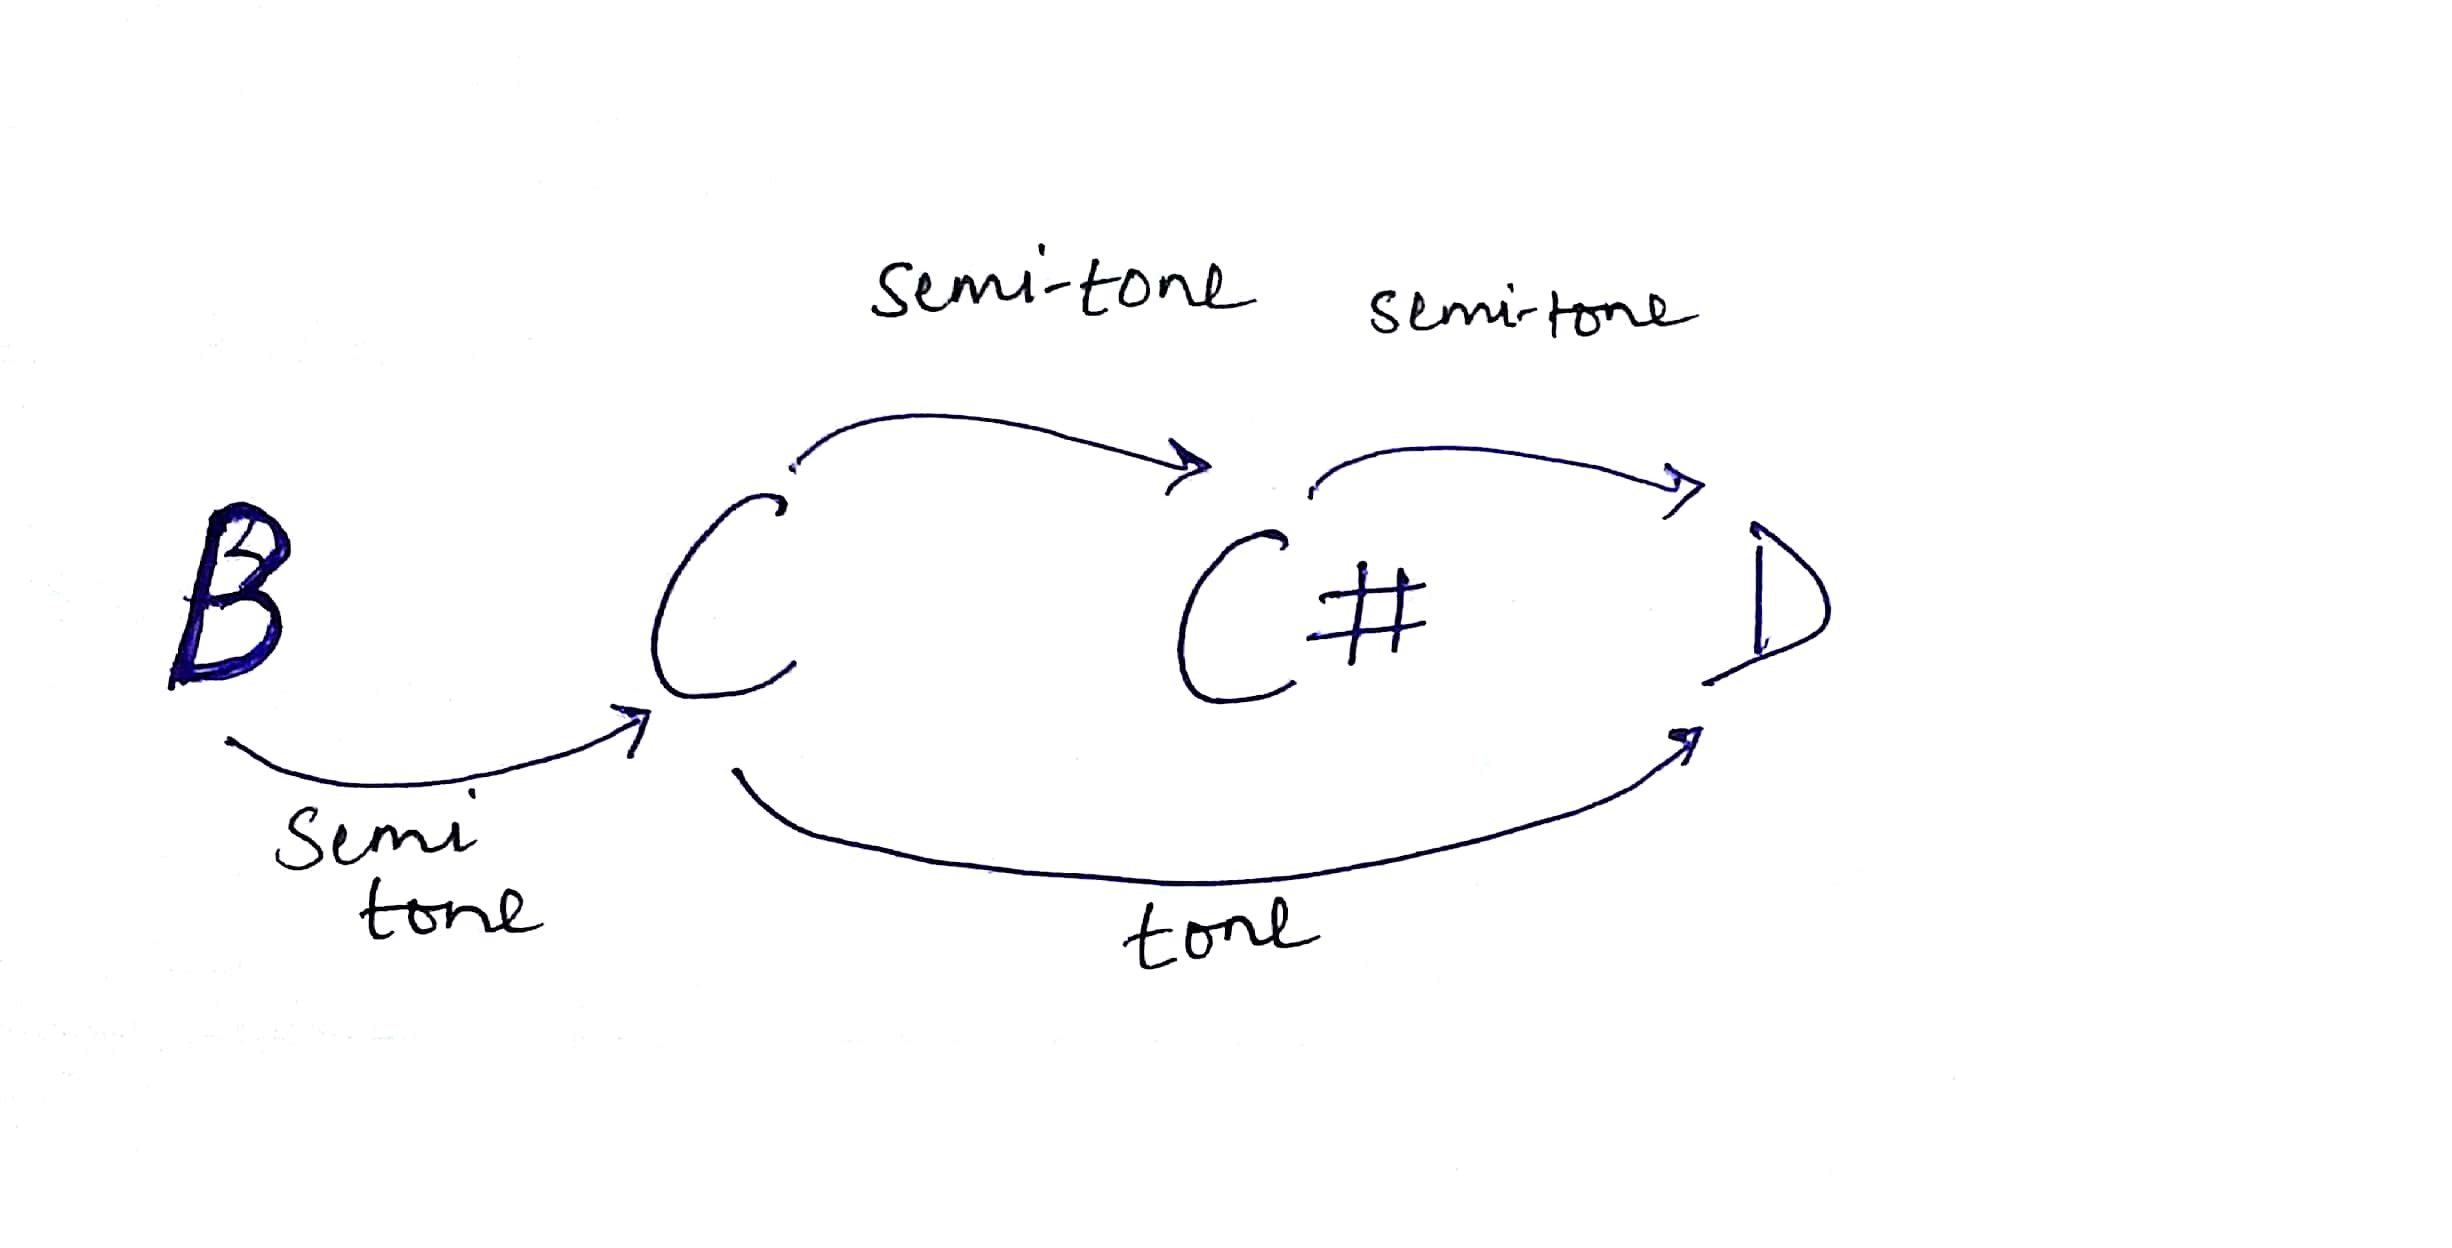 semi-tone semi-tone
B C C# D
Semi
tone
tone